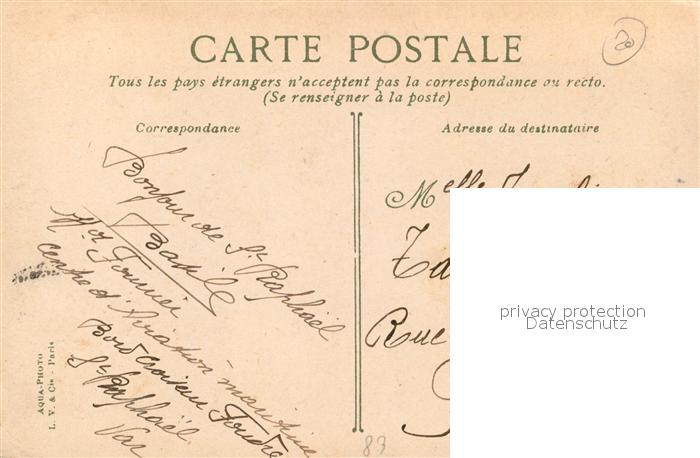 20
CARTE POSTALE
Tous les pays étrangers n'acceptent pas la correspondance au recto.
(Se renseigner à la poste)
Correspondance
Adresse du destinataire
Bonjour de St Raphaël
Basile
Fournier
centre d'Aviation maritime
Bord croiseur Foudre
St Raphaël
Var
AQUA-PHOTO
L. V. & Cie - Paris
Melle
Rue
privacy protection
Datenschutz
83